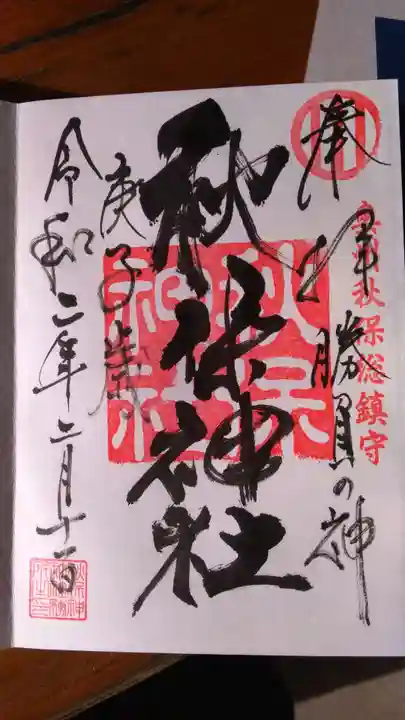 奉拝
勝負の神
奥州秋保総鎮守
秋保神社
秋保神社
庚子歳
令和二年二月十一日